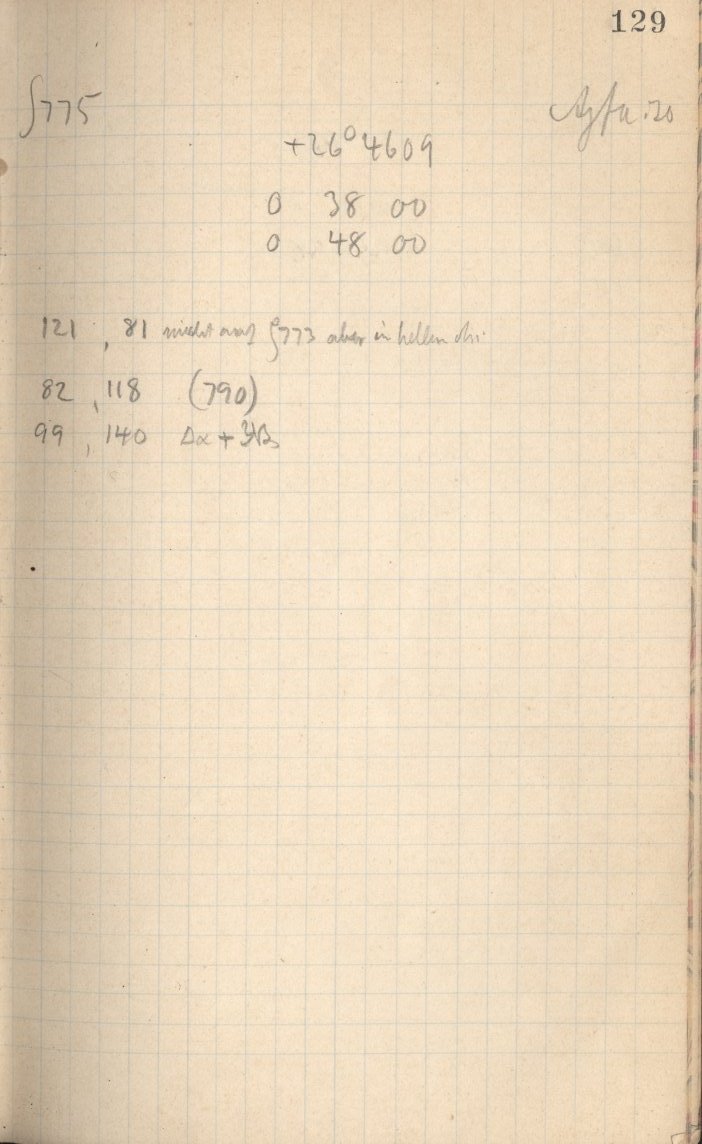 129
775
+26° 4609
0 38 00
0 48 00
121 , 81 nicht auf 773 aber in hellem
82 , 118 (790)
99 , 140 Δα +